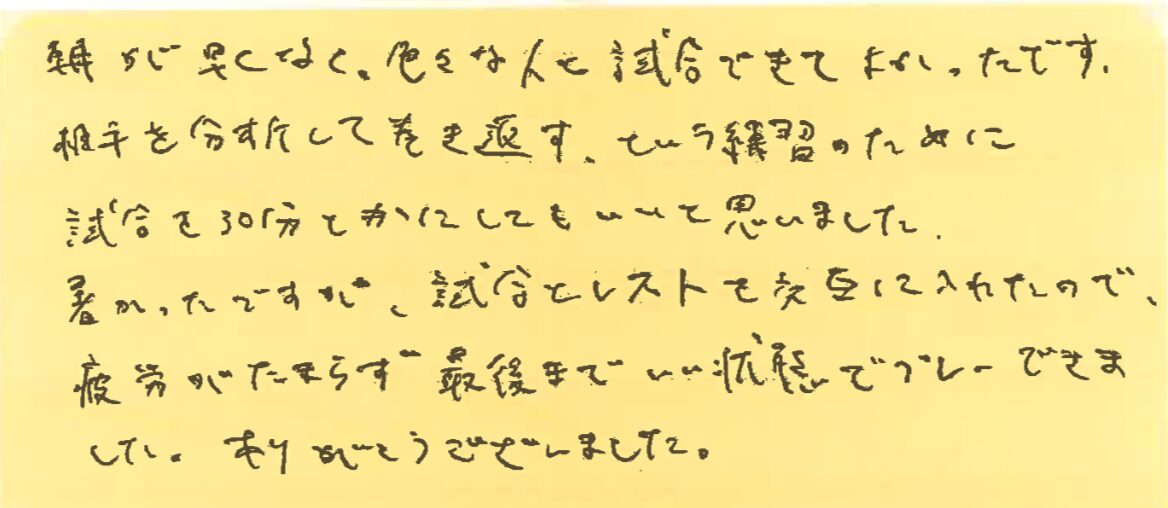 朝が早くなく、色々な人と試合できてよかったです。
相手を分析して巻き返す、という練習のために
試合を30分とかにしてもいいと思いました。
暑かったですが、試合とレストを交互に入れたので、
疲労がたまらず最後までいい状態でプレーできま
した。ありがとうございました。